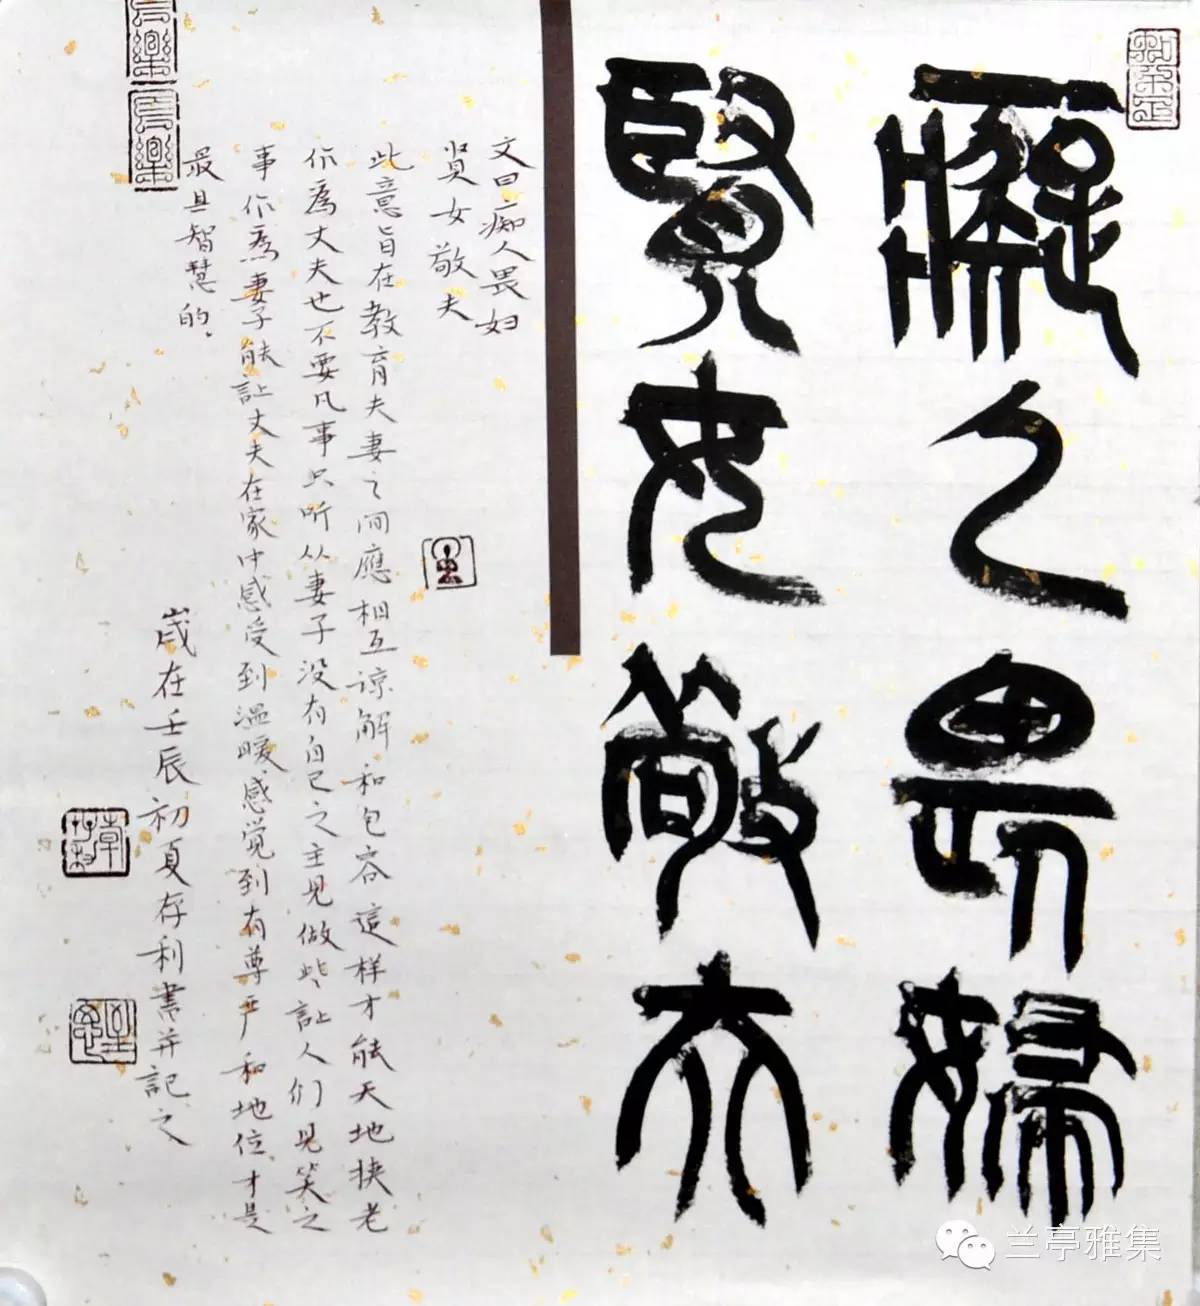 癡人畏婦
賢女敬夫
文曰痴人畏妇
贤女敬夫
此意旨在教育夫妻之间應相互谅解和包容這样才能天地挟老
作為丈夫也不要凡事只听从妻子没有自己之主见做些讓人们见笑之
事作為妻子能讓丈夫在家中感受到温暖感觉到有尊严和地位才是
最具智慧的.
歲在壬辰初夏存利書并記之
兰亭雅集